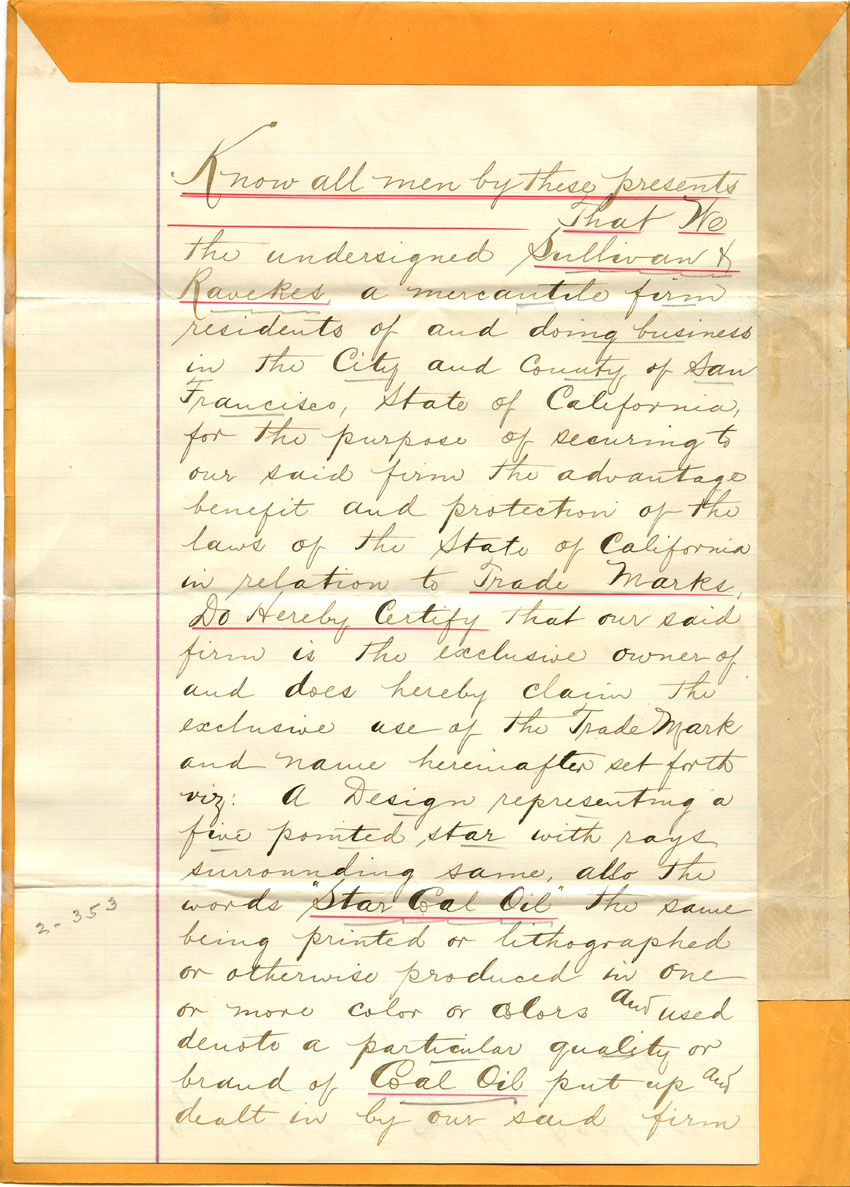 Know all men by these presents
That We
the undersigned Sullivan &
Ravekes, a mercantile firm
residents of and doing business
in the City and County of San
Francisco, State of California,
for the purpose of securing to
our said firm the advantage
benefit and protection of the
laws of the State of California
in relation to Trade Marks,
Do Hereby Certify that our said
firm is the exclusive owner of
and does hereby claim the
exclusive use of the Trade Mark
and name hereinafter set forth
viz: A Design representing a
five pointed star with rays
surrounding same, also the
words "Star Coal Oil" the same
2-353
being printed or lithographed
or otherwise produced in one
or more color or colors and used
denote a particular quality or
brand of Coal Oil put up and
dealt in by our said firm